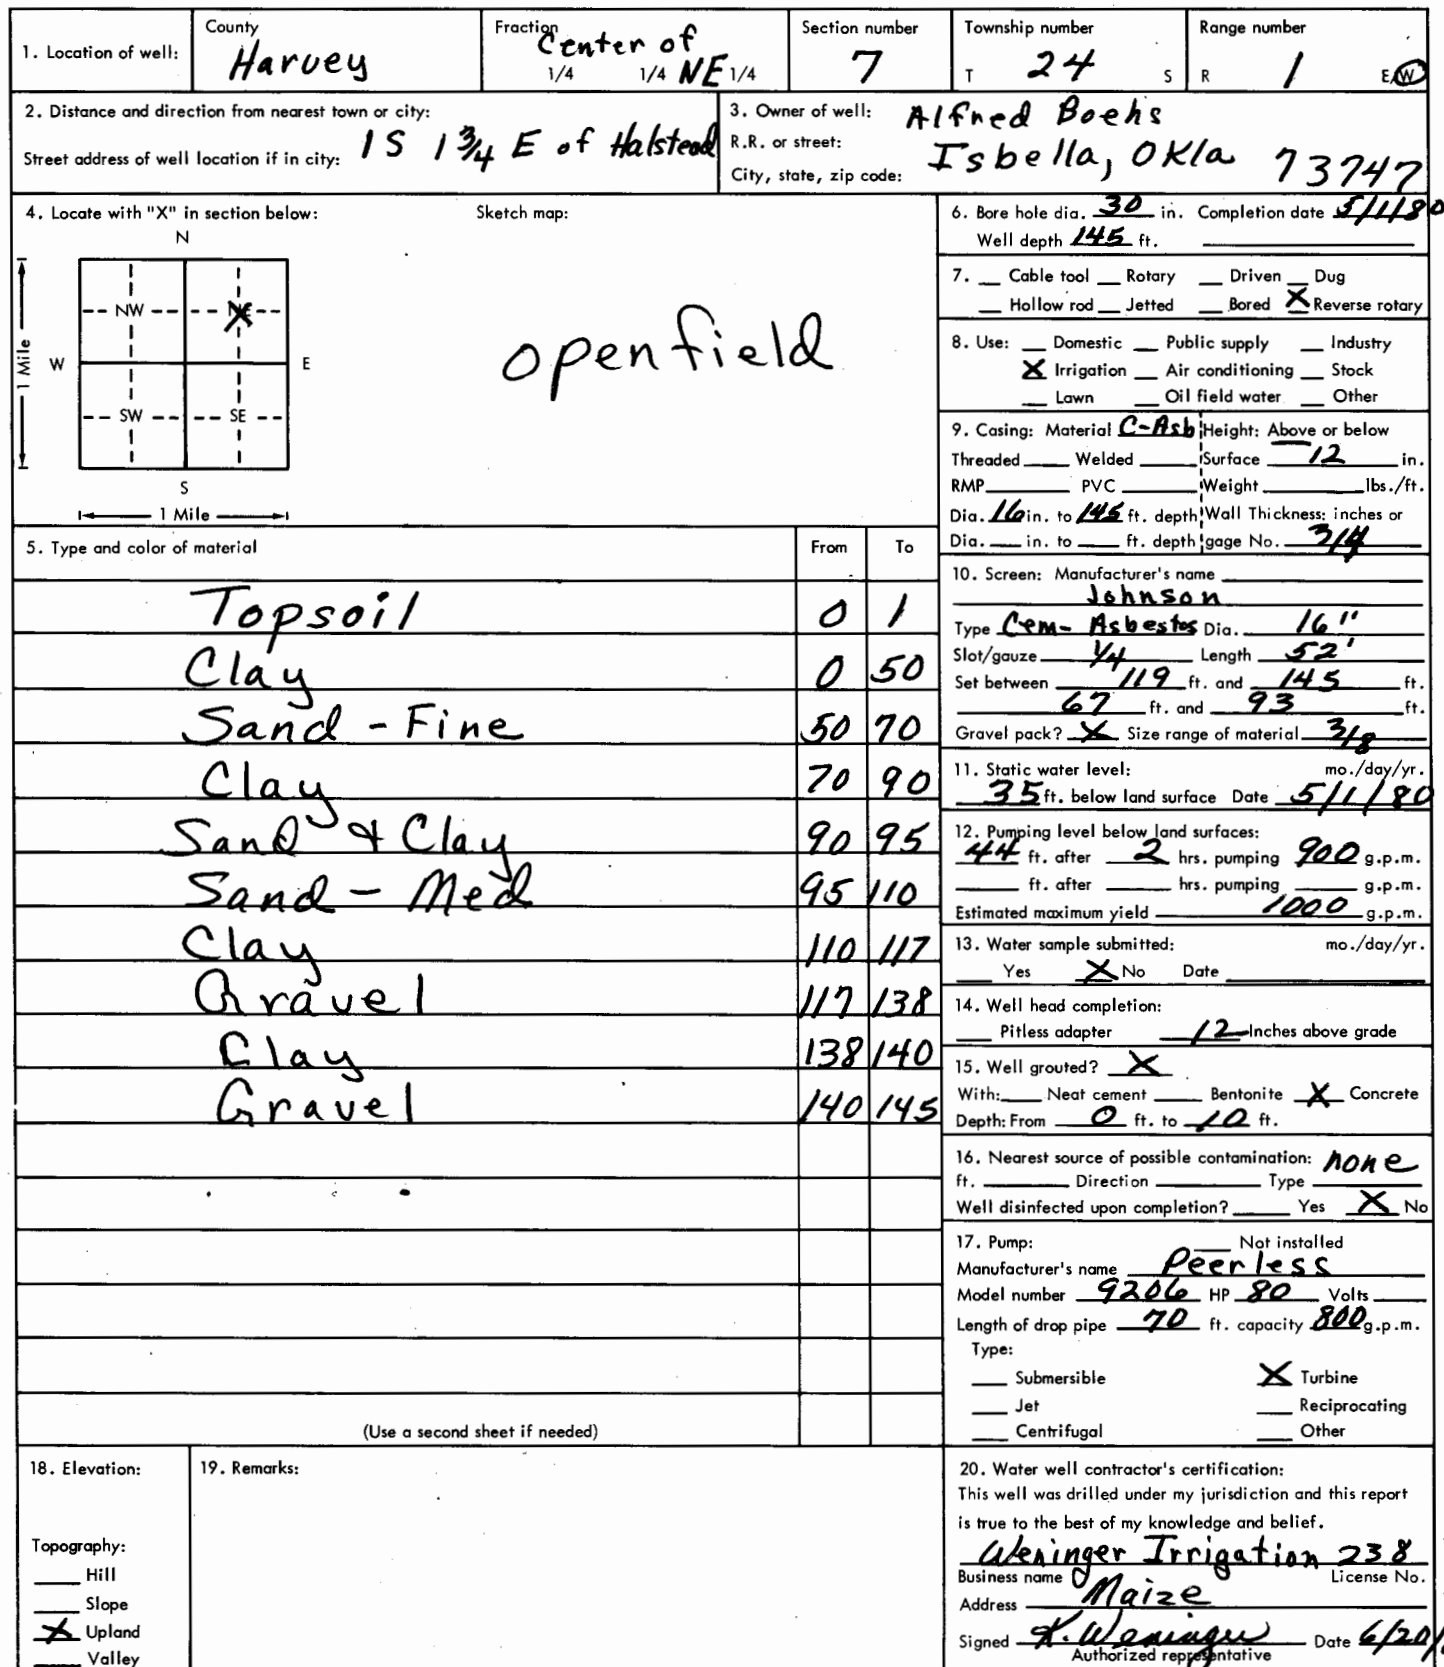 1. Location of well: County Harvey Fraction Center of 1/4 1/4 NE 1/4 Section number 7 Township number T 24 S Range number R 1 E/W
2. Distance and direction from nearest town or city: 1S 1 3/4 E of Halstead
Street address of well location if in city:
3. Owner of well: Alfred Boehs
R.R. or street:
City, state, zip code: Isbella, Okla 73747
4. Locate with "X" in section below: Sketch map:
N
NW NE
W E
1 Mile
SW SE
S
1 Mile
openfield
5. Type and color of material From To
Topsoil 0 1
Clay 0 50
Sand - Fine 50 70
Clay 70 90
Sand & Clay 90 95
Sand - Med 95 110
Clay 110 117
Gravel 117 138
Clay 138 140
Gravel 140 145
(Use a second sheet if needed)
6. Bore hole dia. 30 in. Completion date 5/1/80
Well depth 145 ft.
7. __ Cable tool __ Rotary __ Driven __ Dug
__ Hollow rod __ Jetted __ Bored X Reverse rotary
8. Use: __ Domestic __ Public supply __ Industry
X Irrigation __ Air conditioning __ Stock
__ Lawn __ Oil field water __ Other
9. Casing: Material C-Asb Height: Above or below
Threaded __ Welded __ Surface 12 in.
RMP __ PVC __ Weight __ lbs./ft.
Dia. 16 in. to 145 ft. depth Wall Thickness: inches or
Dia. __ in. to __ ft. depth gage No. 3/4
10. Screen: Manufacturer's name
Johnson
Type Cem- Asbestos Dia. 16"
Slot/gauze 1/4 Length 52'
Set between 119 ft. and 145 ft.
67 ft. and 93 ft.
Gravel pack? X Size range of material 3/8
11. Static water level: mo./day/yr.
35 ft. below land surface Date 5/1/80
12. Pumping level below land surfaces:
44 ft. after 2 hrs. pumping 900 g.p.m.
__ ft. after __ hrs. pumping __ g.p.m.
Estimated maximum yield 1000 g.p.m.
13. Water sample submitted: mo./day/yr.
__ Yes X No Date
14. Well head completion:
__ Pitless adapter 12 Inches above grade
15. Well grouted? X
With: __ Neat cement __ Bentonite X Concrete
Depth: From 0 ft. to 10 ft.
16. Nearest source of possible contamination: none
ft. __ Direction __ Type __
Well disinfected upon completion? __ Yes X No
17. Pump: __ Not installed
Manufacturer's name Peerless
Model number 9206 HP 80 Volts
Length of drop pipe 70 ft. capacity 800 g.p.m.
Type:
__ Submersible X Turbine
__ Jet __ Reciprocating
__ Centrifugal __ Other
18. Elevation:
Topography:
__ Hill
__ Slope
X Upland
__ Valley
19. Remarks:
20. Water well contractor's certification:
This well was drilled under my jurisdiction and this report
is true to the best of my knowledge and belief.
Weninger Irrigation 238
Business name License No.
Address Maize
Signed K. Weninger Date 6/20/
Authorized representative